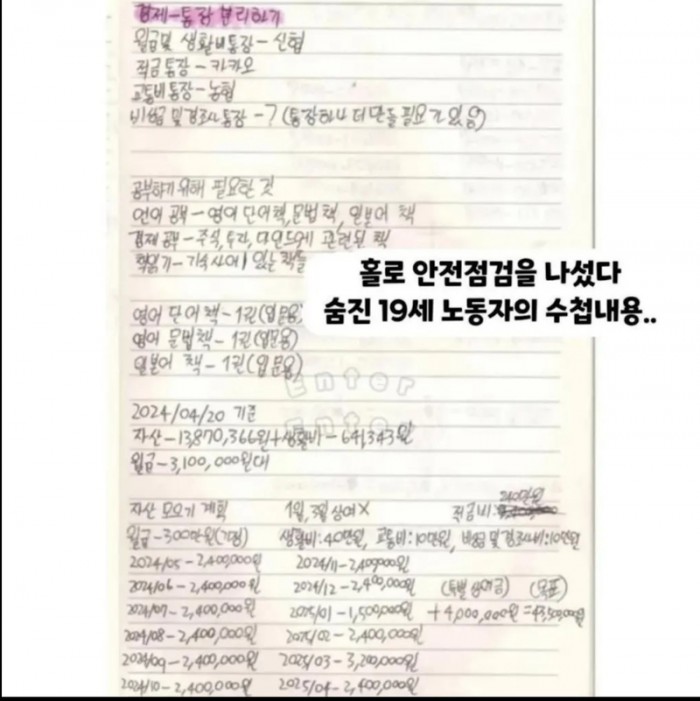 경제-통장 분리하기
월급및 생활비통장-신협
적금통장-카카오
교통비통장-농협
비상금 및 경조사 통장-? (통장하나 더 만들 필요가 있음)
공부하기 위해 필요한 것
언어 공부-영어 단어책, 문법 책, 일본어 책
경제 공부-주식, 투자, 마인드에 관련된 책
책읽기-기숙사에 있는 책들
홀로 안전점검을 나섰다
숨진 19세 노동자의 수첩내용..
영어 단어책-1권(입문용)
영어 문법책-1권(입문용)
일본어 책-1권(입문용)
Enter
Enter
2024/04/20 기준
자산-13,870,366원+생활비-641,343원
월급-3,100,000원대
자산 모으기 계획 1월, 3월 상여X 적금비: 240만원
월급-300만원(가정) 생활비:40만원, 교통비:10만원, 비상금 및 경조사비:10만원
2024/05-2,400,000원 2024/11-2,400,000원
2024/06-2,400,000원 2024/12-2,400,000원 (특별 상여금) (목표)
2024/07-2,400,000원 2025/01-1,500,000원 +4,000,000원=43,500,000원
2024/08-2,400,000원 2025/02-2,400,000원
2024/09-2,400,000원 2025/03-3,200,000원
2024/10-2,400,000원 2025/04-2,400,000원